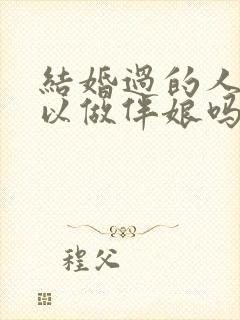 結婚過的人
以做伴娘吗
程父